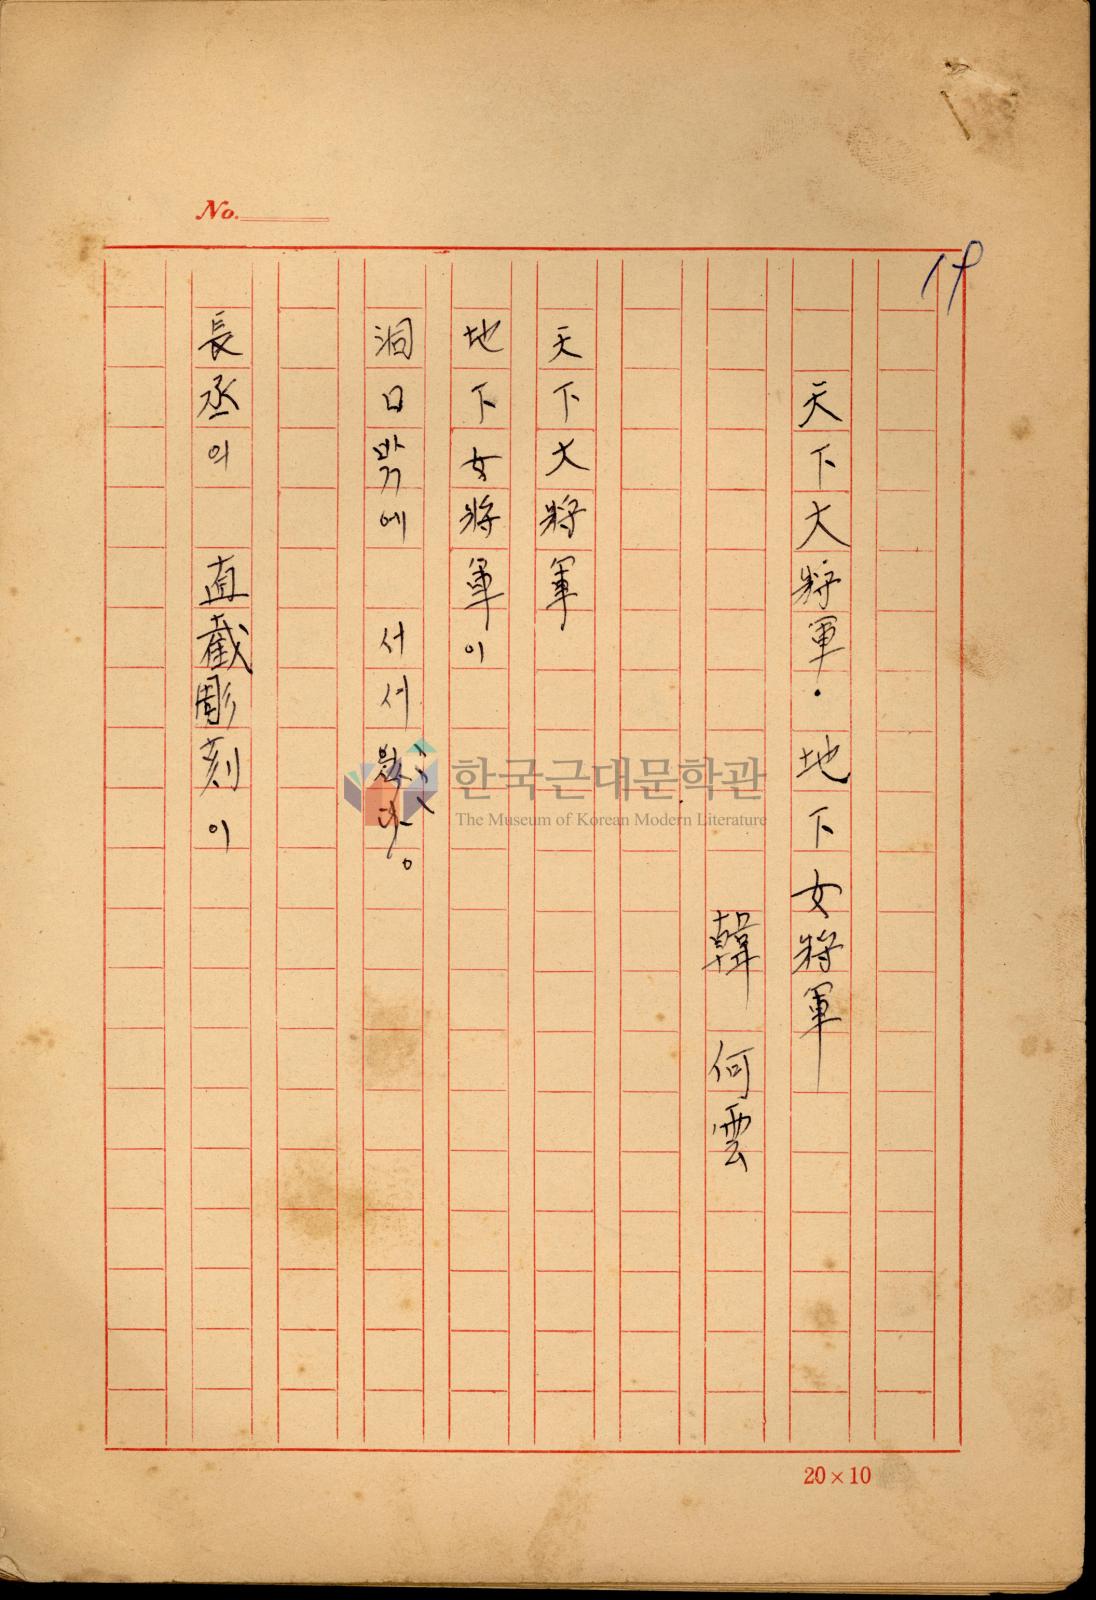 No.
19
天下大將軍·地下女將軍
韓何雲
天下大將軍
地下女將軍이
洞口밖에 서서
長丞의 直截彫刻이
한국근대문학관
The Museum of Korean Modern Literature
20×10